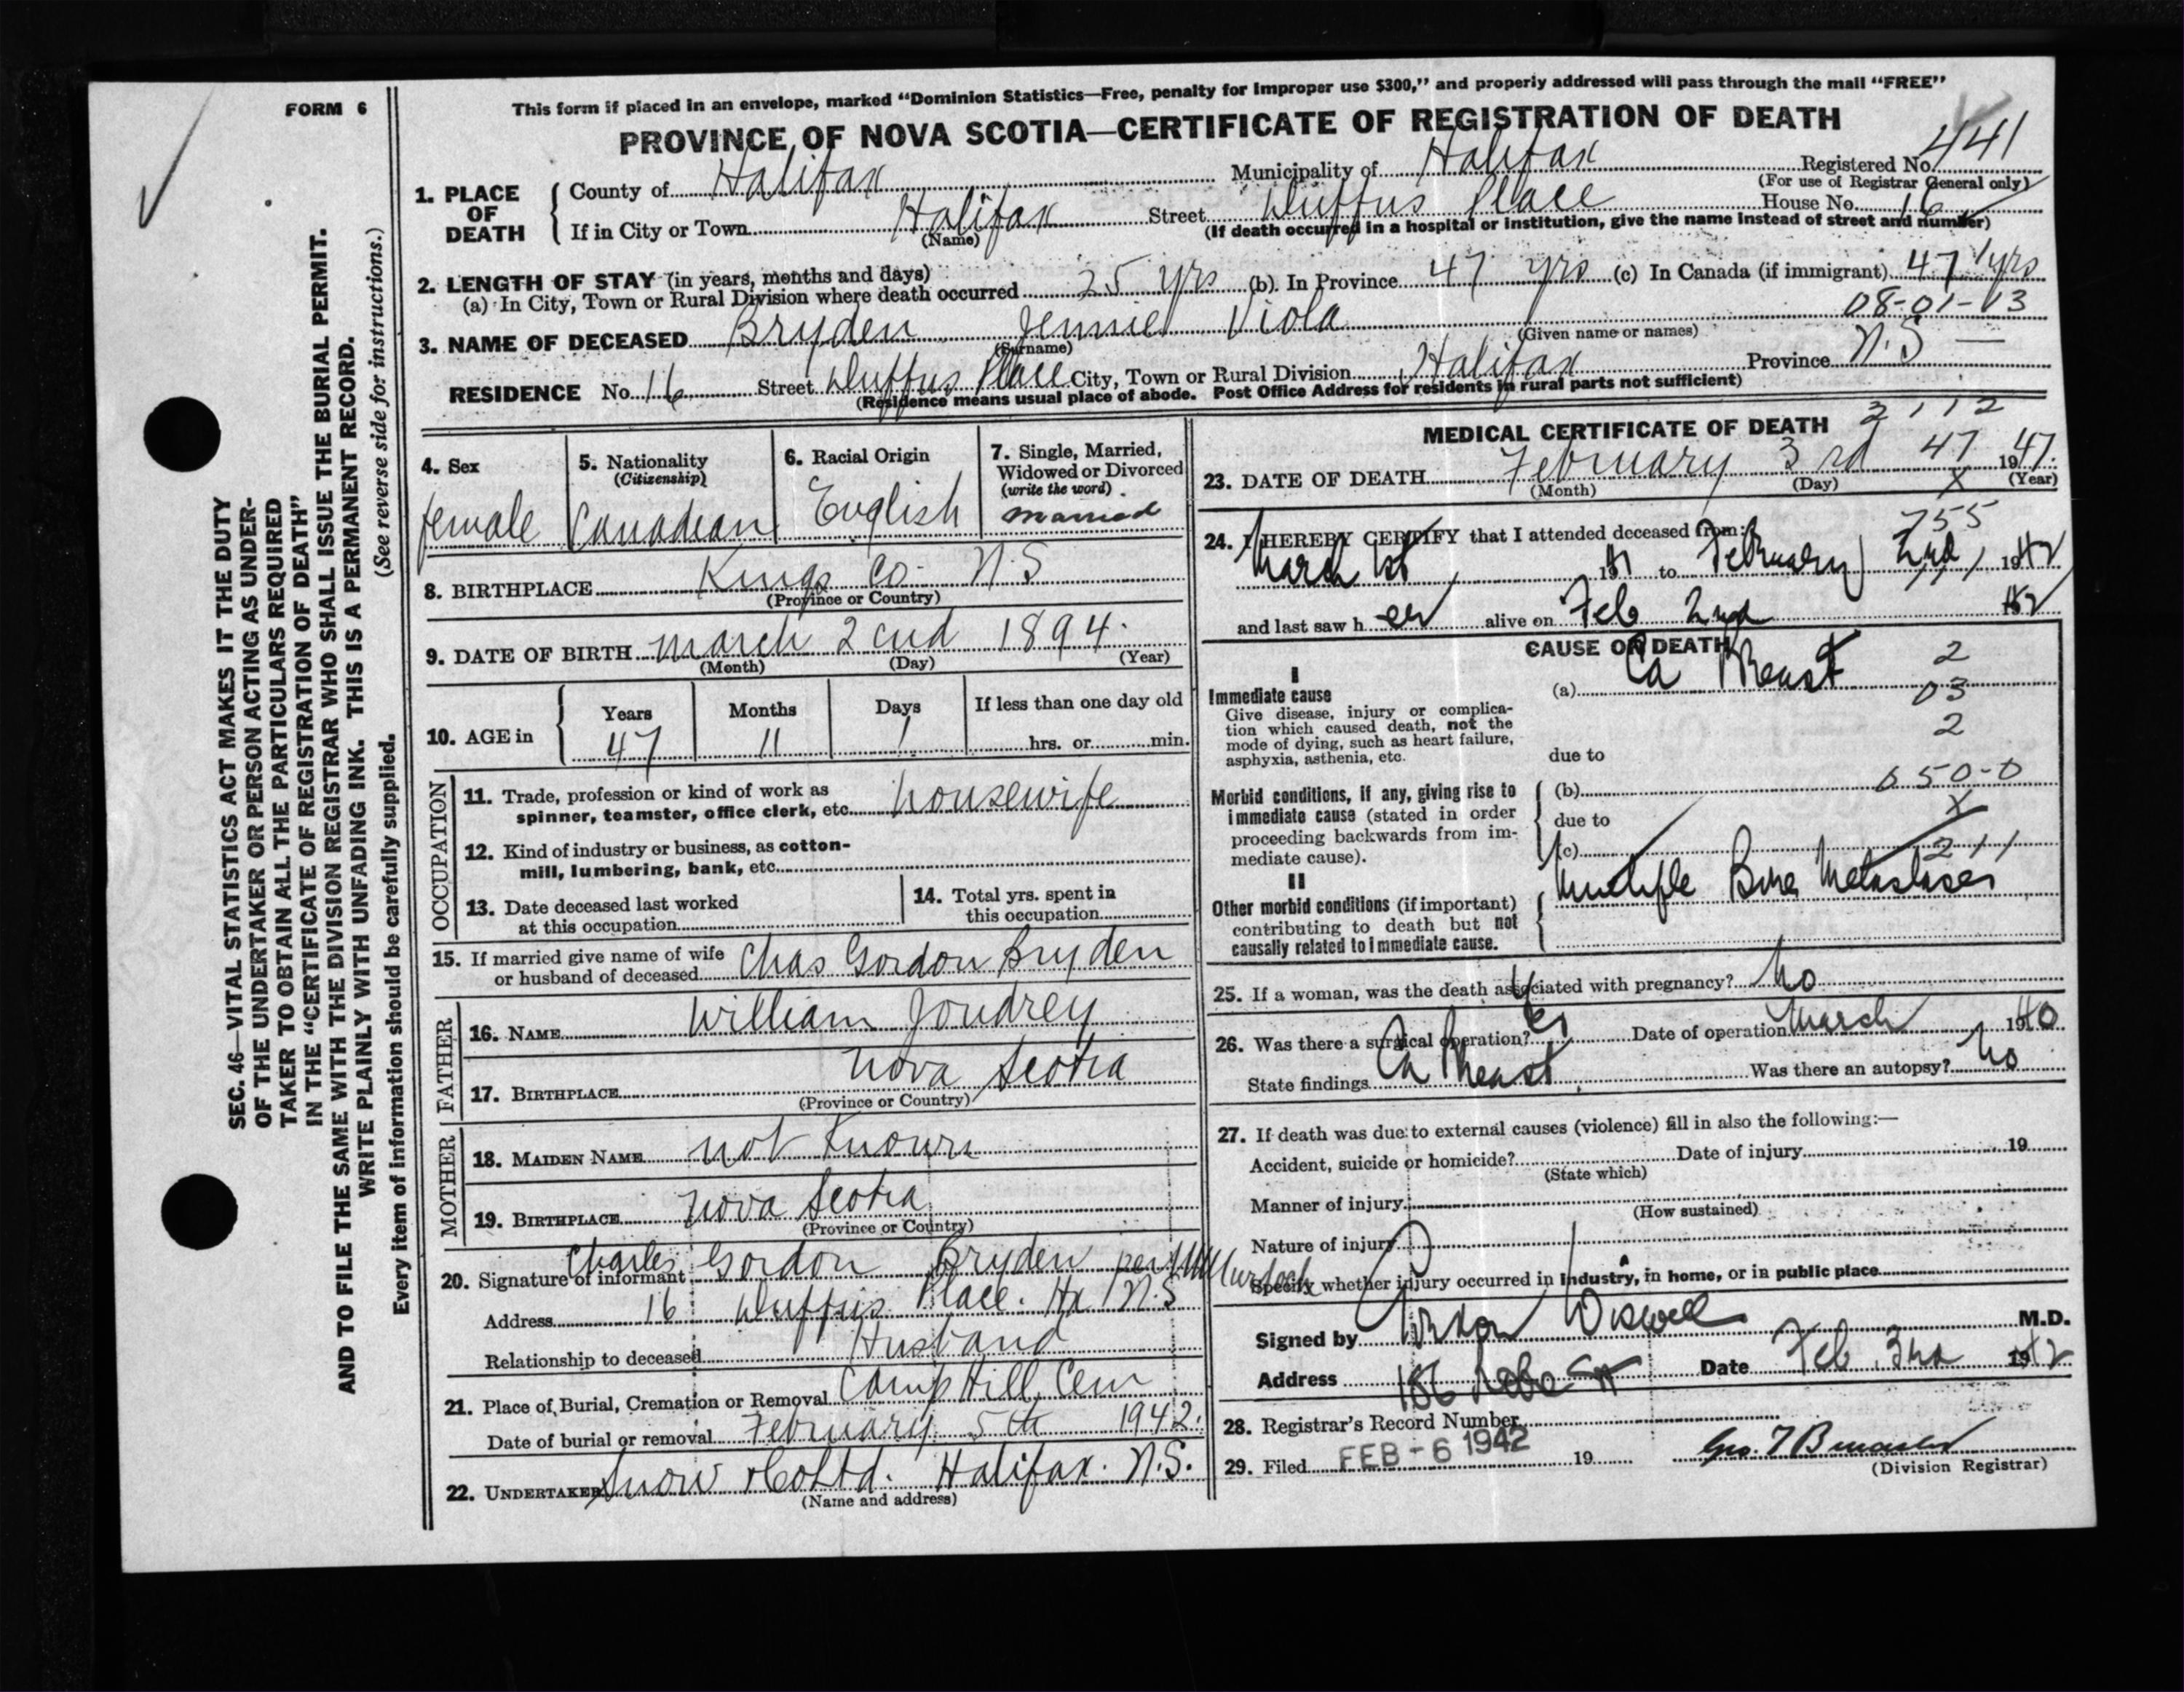 FORM 6
This form if placed in an envelope, marked "Dominion Statistics—Free, penalty for improper use $300," and properly addressed will pass through the mail "FREE"
PROVINCE OF NOVA SCOTIA—CERTIFICATE OF REGISTRATION OF DEATH
1. PLACE OF DEATH
County of Halifax Municipality of Halifax Registered No. 441
(For use of Registrar General only)
If in City or Town Halifax Street Duffus Place House No. 16
(Name) (If death occurred in a hospital or institution, give the name instead of street and number)
2. LENGTH OF STAY (in years, months and days)
(a) In City, Town or Rural Division where death occurred 25 yrs (b). In Province 47 yrs (c) In Canada (if immigrant) 47 yrs
08-01-13
3. NAME OF DECEASED Bryden Jennie Viola
(Surname) (Given name or names)
RESIDENCE No. 16 Street Duffus Place City, Town or Rural Division Halifax Province N.S —
(Residence means usual place of abode. Post Office Address for residents in rural parts not sufficient)
4. Sex
female
5. Nationality
(Citizenship)
Canadian
6. Racial Origin
English
7. Single, Married,
Widowed or Divorced
(write the word)
married
8. BIRTHPLACE Kings Co. N.S
(Province or Country)
9. DATE OF BIRTH march 2cnd 1894.
(Month) (Day) (Year)
10. AGE in
Years Months Days If less than one day old
47 11 1 hrs. or min.
OCCUPATION
11. Trade, profession or kind of work as
spinner, teamster, office clerk, etc. housewife
12. Kind of industry or business, as cotton-
mill, lumbering, bank, etc.
13. Date deceased last worked
at this occupation
14. Total yrs. spent in
this occupation
15. If married give name of wife
or husband of deceased Chas Gordon Bryden
FATHER
16. NAME William Joudrey
17. BIRTHPLACE Nova Scotia
(Province or Country)
MOTHER
18. MAIDEN NAME not Known
19. BIRTHPLACE Nova Scotia
(Province or Country)
20. Signature of informant Charles Gordon Bryden per Murdoch
Address 16 Duffus Place. Hx N.S
Relationship to deceased Husband
21. Place of Burial, Cremation or Removal Camp Hill Cem
Date of burial or removal February 5th 1942.
22. UNDERTAKER Snow & Co Ltd. Halifax. N.S.
(Name and address)
MEDICAL CERTIFICATE OF DEATH 2112
23. DATE OF DEATH February 3rd 47 1947.
(Month) (Day) (Year)
X
755
24. I HEREBY CERTIFY that I attended deceased from:
March 1st 1941 to February 2nd, 1942
and last saw her alive on Feb 2nd 1942
CAUSE OF DEATH
I
Immediate cause
Give disease, injury or complica-
tion which caused death, not the
mode of dying, such as heart failure,
asphyxia, asthenia, etc.
(a) Ca Breast
2
03
2
due to
Morbid conditions, if any, giving rise to
immediate cause (stated in order
proceeding backwards from im-
mediate cause).
(b) 050-0
due to X
(c) 211
II
Other morbid conditions (if important)
contributing to death but not
causally related to immediate cause.
Multiple Bone Metastases
25. If a woman, was the death associated with pregnancy? No
26. Was there a surgical operation? Yes Date of operation March 1940
State findings Ca Breast. Was there an autopsy? No
27. If death was due to external causes (violence) fill in also the following:—
Accident, suicide or homicide? Date of injury 19
(State which)
Manner of injury
(How sustained)
Nature of injury
Specify whether injury occurred in industry, in home, or in public place
Signed by Gordon Wiswell M.D.
Address 186 Robie St Date Feb 3rd 1942
28. Registrar's Record Number
29. Filed FEB - 6 1942 19
(Division Registrar)
SEC. 46—VITAL STATISTICS ACT MAKES IT THE DUTY
OF THE UNDERTAKER OR PERSON ACTING AS UNDER-
TAKER TO OBTAIN ALL THE PARTICULARS REQUIRED
IN THE "CERTIFICATE OF REGISTRATION OF DEATH"
AND TO FILE THE SAME WITH THE DIVISION REGISTRAR WHO SHALL ISSUE THE BURIAL PERMIT.
WRITE PLAINLY WITH UNFADING INK. THIS IS A PERMANENT RECORD.
Every item of information should be carefully supplied. (See reverse side for instructions.)